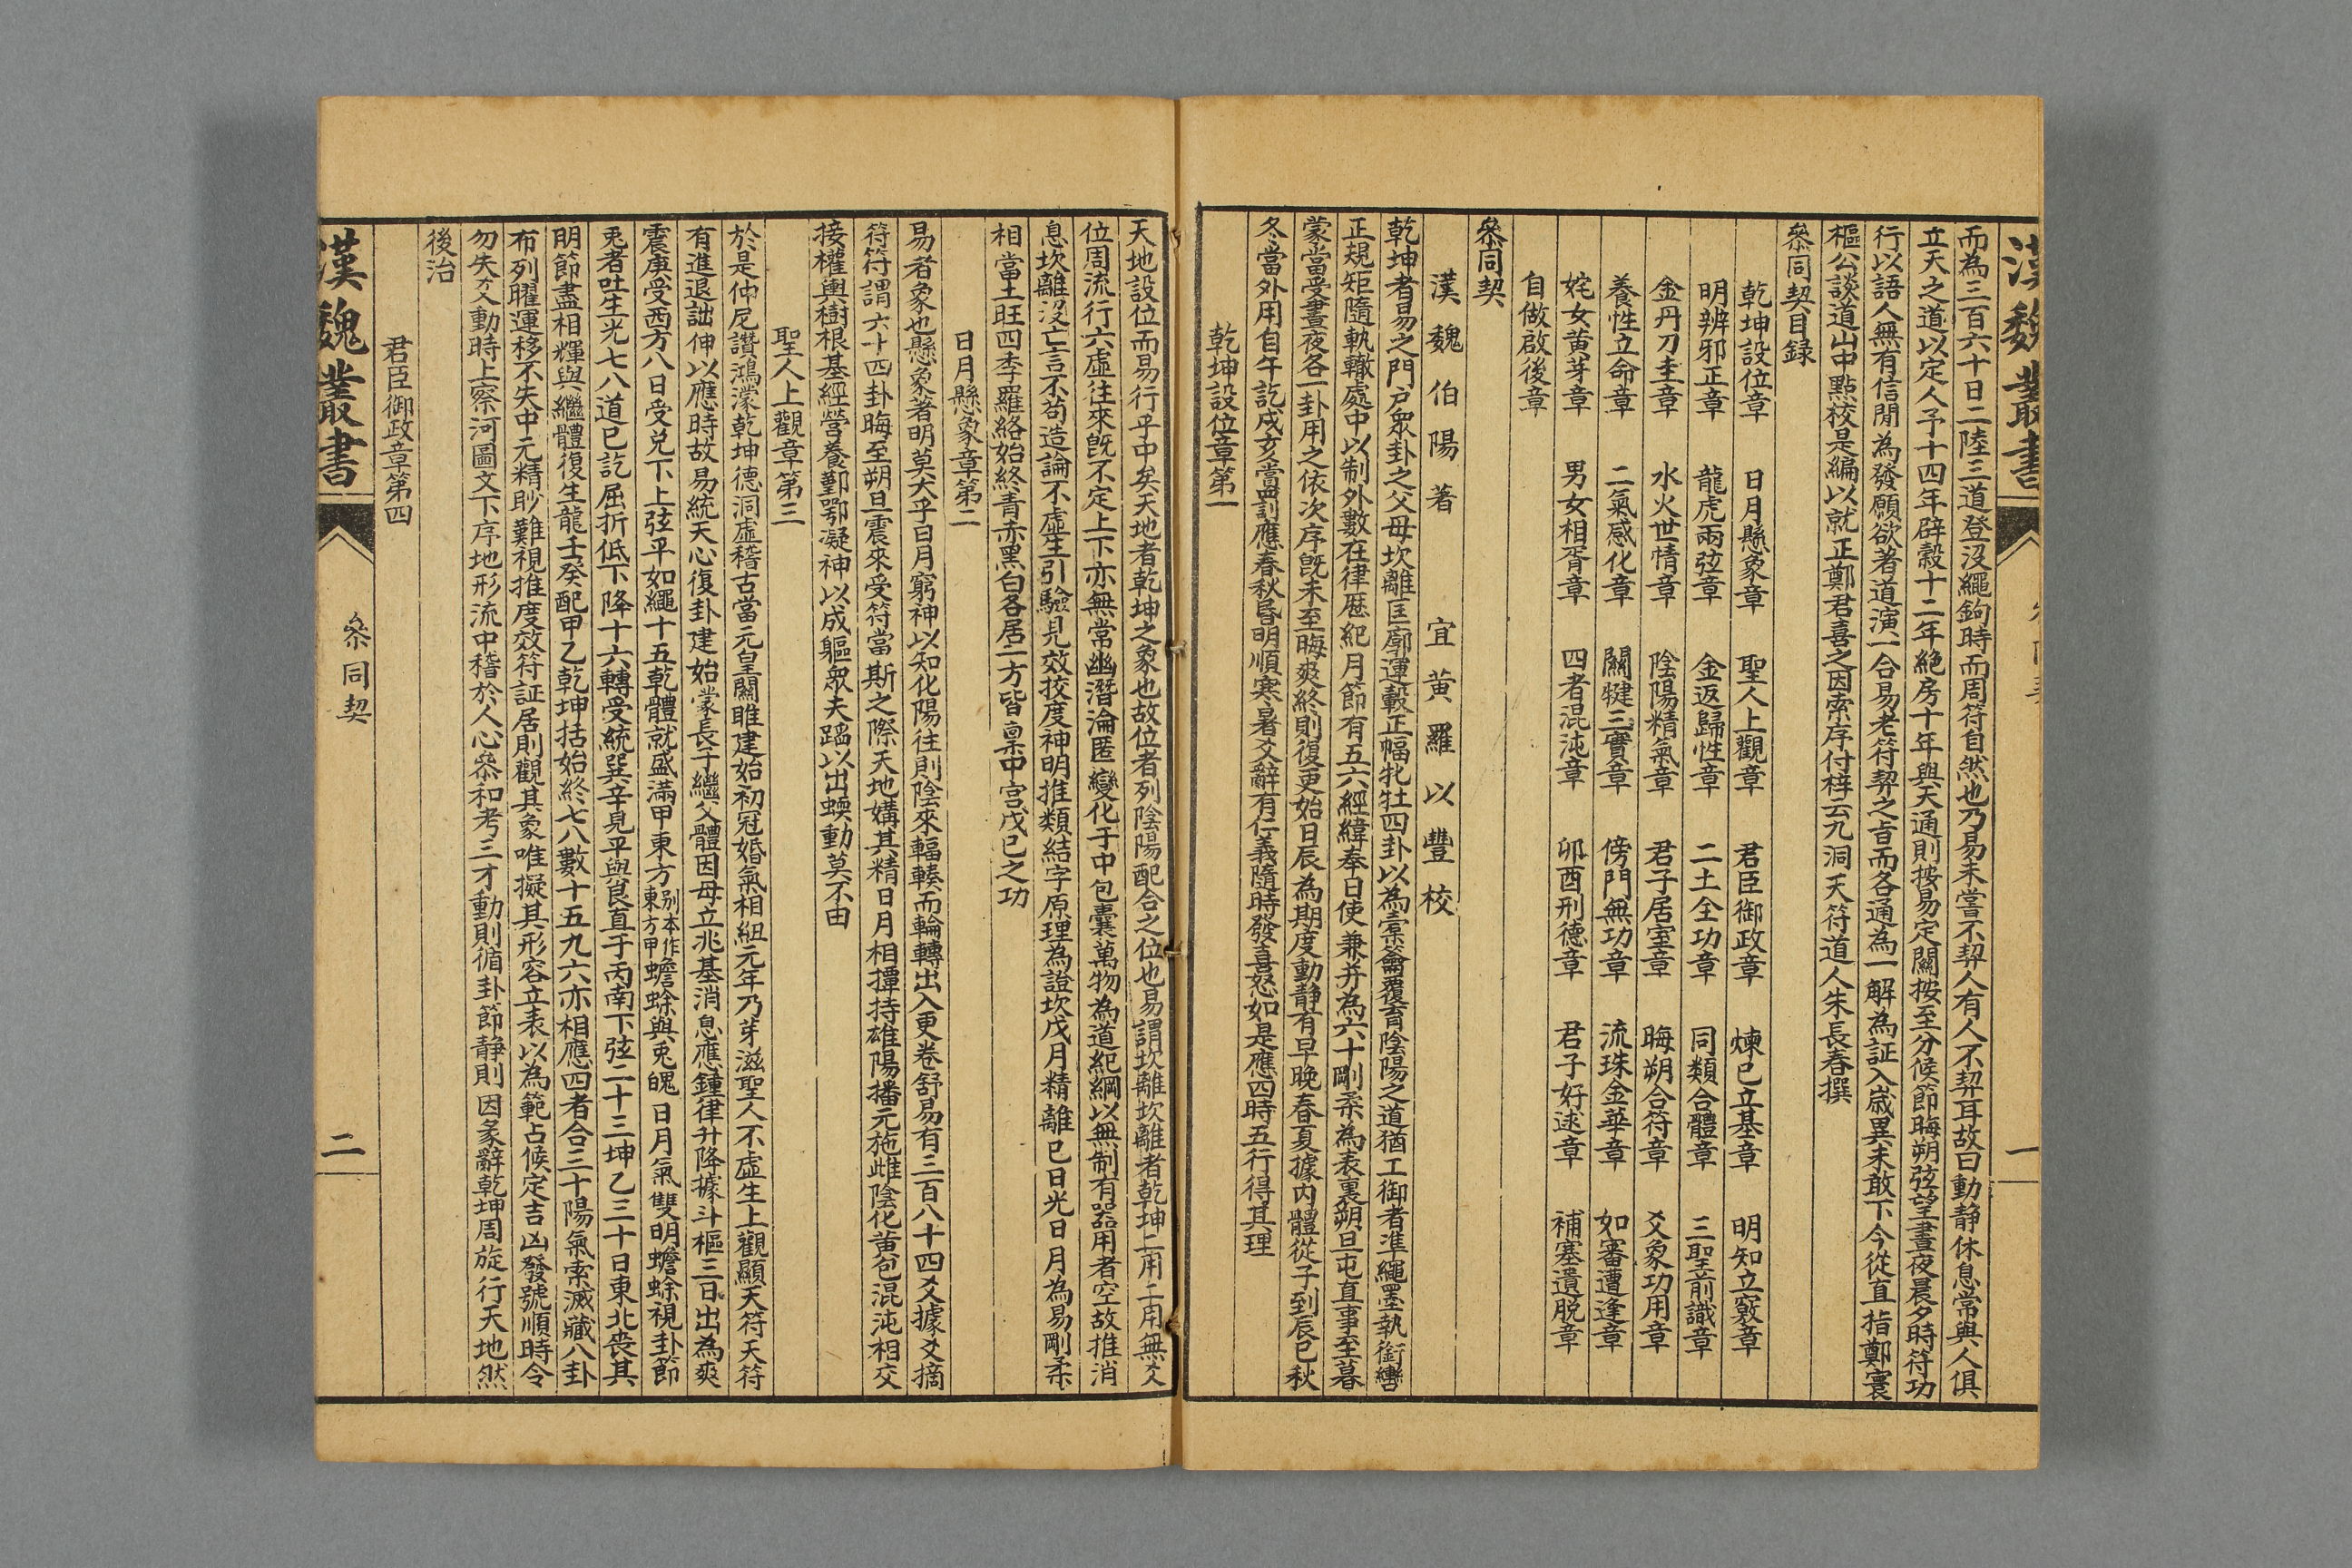 漢魏叢書
一
而為三百六十日二陸三道登沒繩鉤時而周符自然也乃易未嘗不契人有人不契耳故曰動静休息常與人俱
立天之道以定人予十四年辟穀十二年絶房十年與天通則按易定關按至分候節晦朔弦望晝夜晨夕時符功
行以語人無有信閒為發願欲著道演一合易老符契之㫖而各通為一解為証入嵗異未敢下今從直指鄭寰
樞公談道山中點校是編以就正鄭君喜之因索序付梓云九洞天符道人朱長春撰
叅同契目録
乾坤設位章　日月懸象章　聖人上觀章　君臣御政章　煉己立基章　明知立竅章
明辨邪正章　龍虎兩弦章　金返歸性章　二土全功章　同類合體章　三聖前識章
金丹刀圭章　水火世情章　陰陽精氣章　君子居室章　晦朔合符章　爻象功用章
養性立命章　二氣感化章　關犍三寶章　傍門無功章　流珠金華章　如審遭逢章
姹女黄芽章　男女相胥章　四者混沌章　卯酉刑德章　君子好逑章　補塞遺脱章
自做啟後章
叅同契
漢魏伯陽著　宜黄羅以豐校
乾坤者易之門戸眾卦之父母坎離匡廓運轂正輻牝牡四卦以為橐籥覆育陰陽之道猶工御者準繩墨執銜轡
正規矩隨軌轍處中以制外數在律厯紀月節有五六經緯奉日使兼并為六十剛柔為表裏朔旦屯直事至暮
蒙當受晝夜各一卦用之依次序旣未至晦爽終則復更始日辰為期度動静有早晚春夏據内體從子到辰巳秋
冬當外用自午訖戍亥賞罰應春秋昏明順寒暑爻辭有仁義隨時發喜怒如是應四時五行得其理
乾坤設位章第一
天地設位而易行乎中矣天地者乾坤之象也故位者列陰陽配合之位也易謂坎離坎離者乾坤二用二用無爻
位周流行六虛往來旣不定上下亦無常幽潛淪匿變化于中包囊萬物為道紀綱以無制有器用者空故推消
息坎離沒亡言不苟造論不虛生引驗見效挍度神明推類結字原理為證坎戊月精離己日光日月為易剛柔
相當土旺四季羅絡始終青赤黑白各居一方皆稟中宮戊己之功
日月懸象章第二
易者象也懸象著明莫大乎日月窮神以知化陽往則陰來輻輳而輪轉出入更卷舒易有三百八十四爻據爻摘
符符謂六十四卦晦至朔旦震來受符當斯之際天地媾其精日月相撢持雄陽播元施雌陰化黄包混沌相交
接權輿樹根基經營養鄞鄂凝神以成軀眾夫蹈以出蝡動莫不由
聖人上觀章第三
於是仲尼讚鴻濛乾坤德洞虛稽古當元皇關雎建始初冠婚氣相紐元年乃芽滋聖人不虛生上觀顯天符天符
有進退詘伸以應時故易統天心復卦建始萌長子繼父體因母立兆基消息應鍾律升降據斗樞三日出為爽
震庚受西方八日受兌丁上弦平如繩十五乾體就盛滿甲東方别本作東方甲蟾蜍與兎魄日月氣雙明蟾蜍視卦節
兎者吐生光七八道已訖屈折低下降十六轉受統巽辛見平與艮直于丙南下弦二十三坤乙三十日東北喪其
朋節盡相輝與繼體復生龍壬癸配甲乙乾坤括始終七八數十五九六亦相應四者合三十陽氣索滅藏八卦
布列曜運移不失中元精眇難視推度效符証居則觀其象唯擬其形容立表以為範占候定吉凶發號順時令
勿失爻動時上察河圖文下序地形流中稽於人心叅和考三才動則循卦節静則因彖辭乾坤周旋行天地然
後治
君臣御政章第四
漢魏叢書
叅同契
二